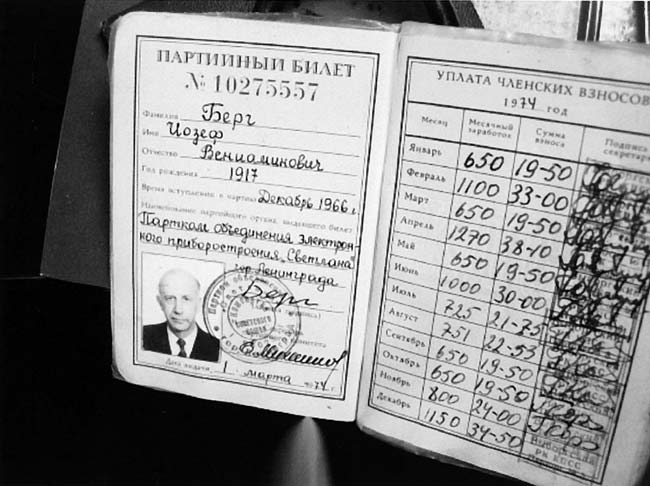 ПАРТИЙНЫЙ БИЛЕТ
№ 10275557
Фамилия Берг
Имя Иозеф
Отчество Вениаминович
Год рождения 1917
Время вступления в партию Декабрь 1966 г.
Наименование партийного органа, выдавшего билет
Партком объединения электрон-
ного приборостроения „Светлана"
гор. Ленинграда
Берг
Дата выдачи 1 марта 1974 г.
УПЛАТА ЧЛЕНСКИХ ВЗНОСОВ
1974 год
Месяц Месячный заработок Сумма взноса Подпись секретаря
Январь 650 19-50
Февраль 1100 33-00
Март 650 19-50
Апрель 1270 38-10
Май 650 19-50
Июнь 1000 30-00
Июль 725 21-75
Август 751 22-53
Сентябрь 650 19-50
Октябрь 650 19-50
Ноябрь 800 24-00
Декабрь 1150 34-50
РК КПСС